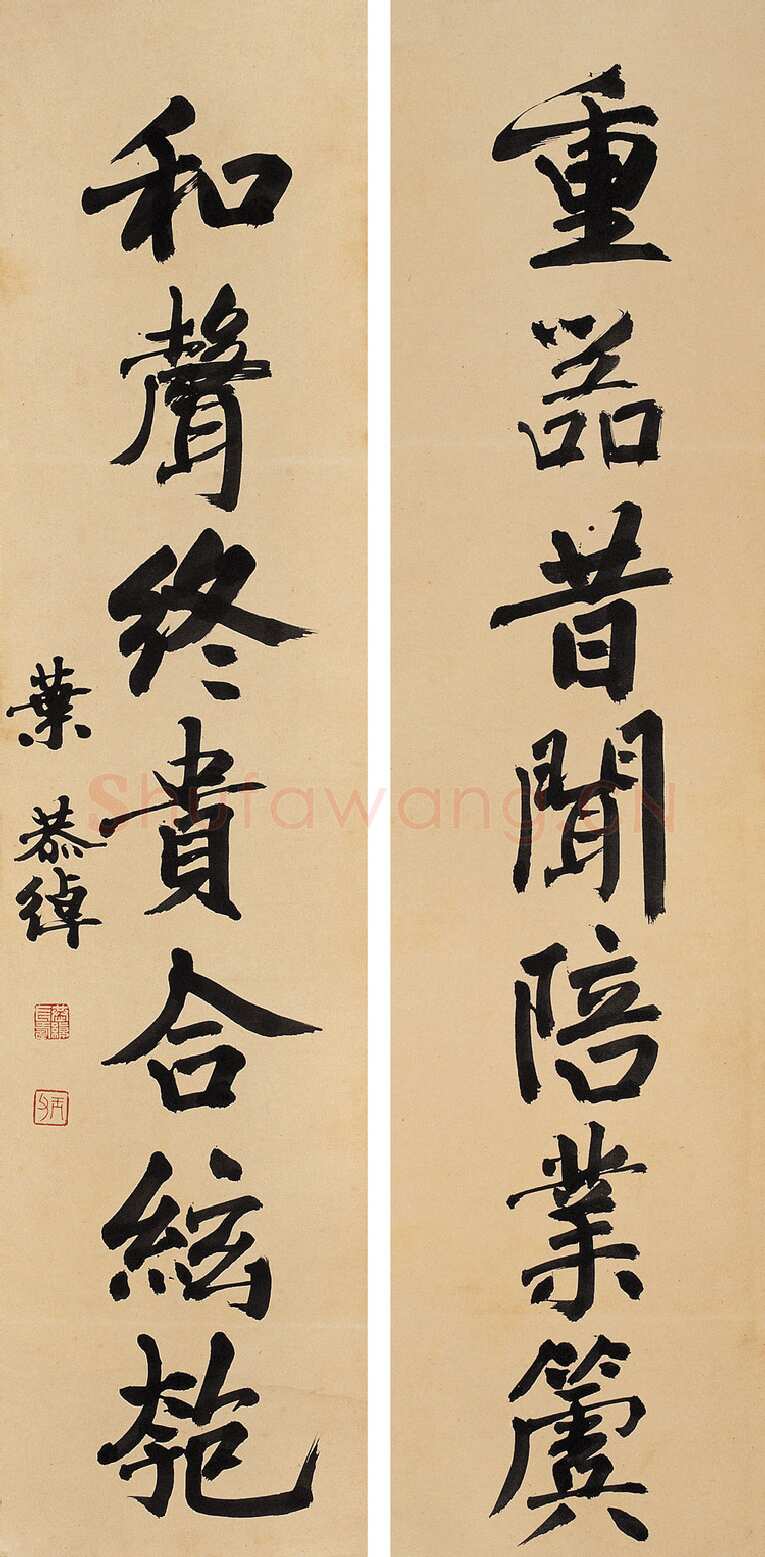 重器昔聞陪業簴
和聲終貴合絃匏
葉恭綽
Shufawang.CN